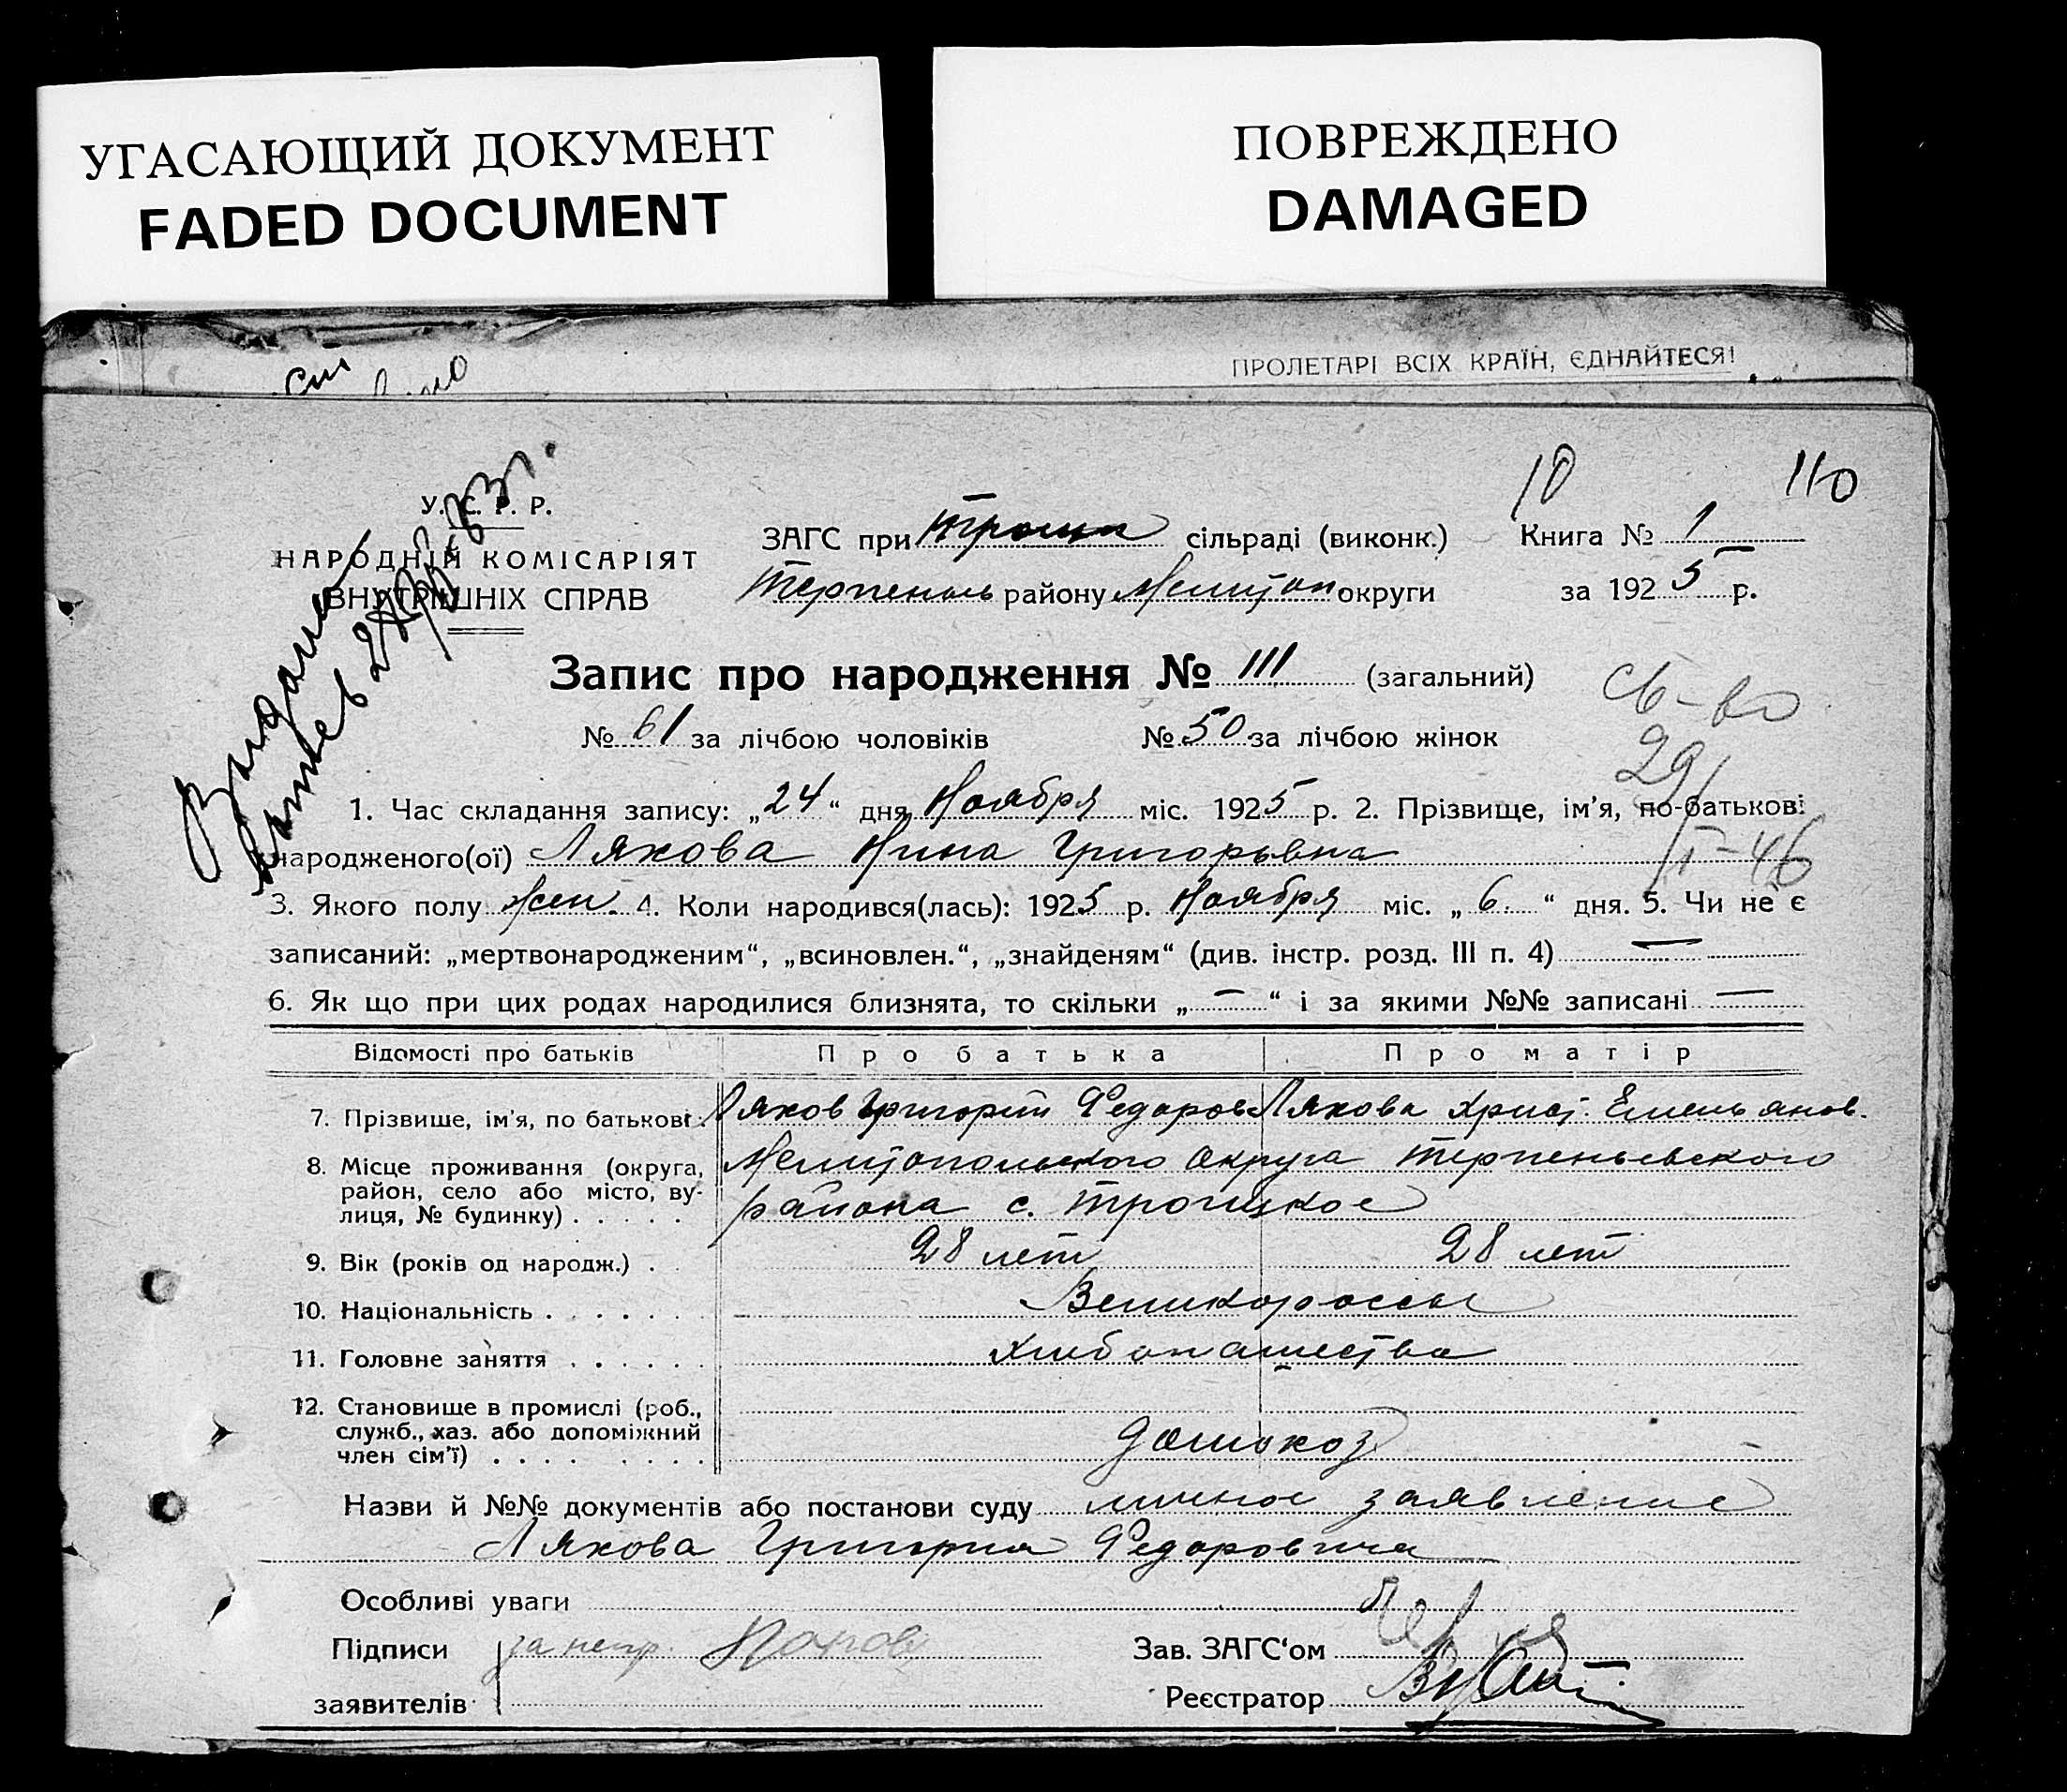 УГАСАЮЩИЙ ДОКУМЕНТ
FADED DOCUMENT
ПОВРЕЖДЕНО
DAMAGED
ПРОЛЕТАРІ ВСІХ КРАЇН, ЄДНАЙТЕСЯ!
10 110
У. С. Р. Р.
НАРОДНІЙ КОМІСАРІЯТ
ВНУТРІШНІХ СПРАВ
ЗАГС при Троицк сільраді (виконк.) Книга № 1
Терпеньев району Мелитоп округи за 1925 р.
Запис про народження № 111 (загальний)
св-во
№ 61 за лічбою чоловіків № 50 за лічбою жінок
29/
1. Час складання запису: „24“ дня Ноября міс. 1925 р. 2. Прізвище, ім'я, по-батькові
народженого(ої) Ляхова Нина Григорьвна
3. Якого полу жен. 4. Коли народився(лась): 1925 р. Ноября міс. „6.“ дня. 5. Чи не є
записаний: „мертвонародженим“, „всиновлен.“, „знайденям“ (див. інстр. розд. III п. 4) —
6. Як що при цих родах народилися близнята, то скільки „ — “ і за якими №№ записані —
Відомості про батьків Про батька Про матір
7. Прізвище, ім'я, по батькові Ляхов Григорий Федоров Ляхова Христ. Емельянов.
8. Місце проживання (округа, Мелитопольского Округа Терпеньевского
район, село або місто, ву-
лиця, № будинку) . . . . . района с. Троицкое
9. Вік (років од народж.) . . 28 лет 28 лет
10. Національність . . . . . . . Великороссы
11. Головне заняття . . . . . . Хлебопашества
12. Становище в промислі (роб.,
служб., хаз. або допоміжний
член сім'ї) . . . . . . . . домохоз
Назви й №№ документів або постанови суду личное заявление
Ляхова Григория Федоровича
Особливі уваги
Підписи за непр. Попов Зав. ЗАГС'ом
заявителів Реєстратор